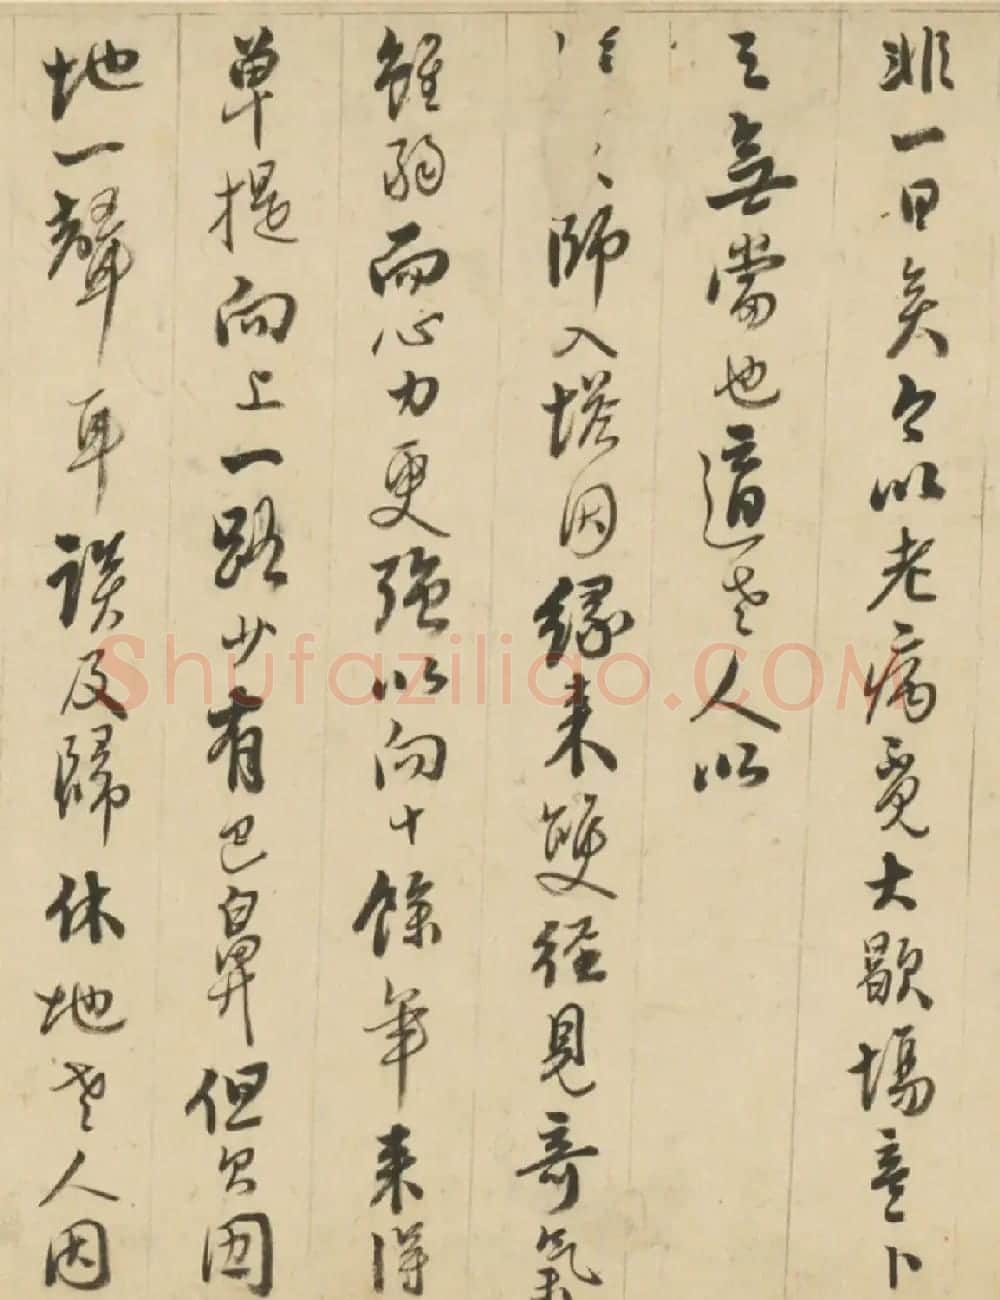 非一日矣今以老病覓大歇場意卜
立無當也道者人以
師入塔因緣來雙徑見奇氣
雖弱而心力更強以向十餘年來得
單提向上一路少有巴鼻但欠因
地一聲耳談及歸休地老人因
Shufaziliao.COM